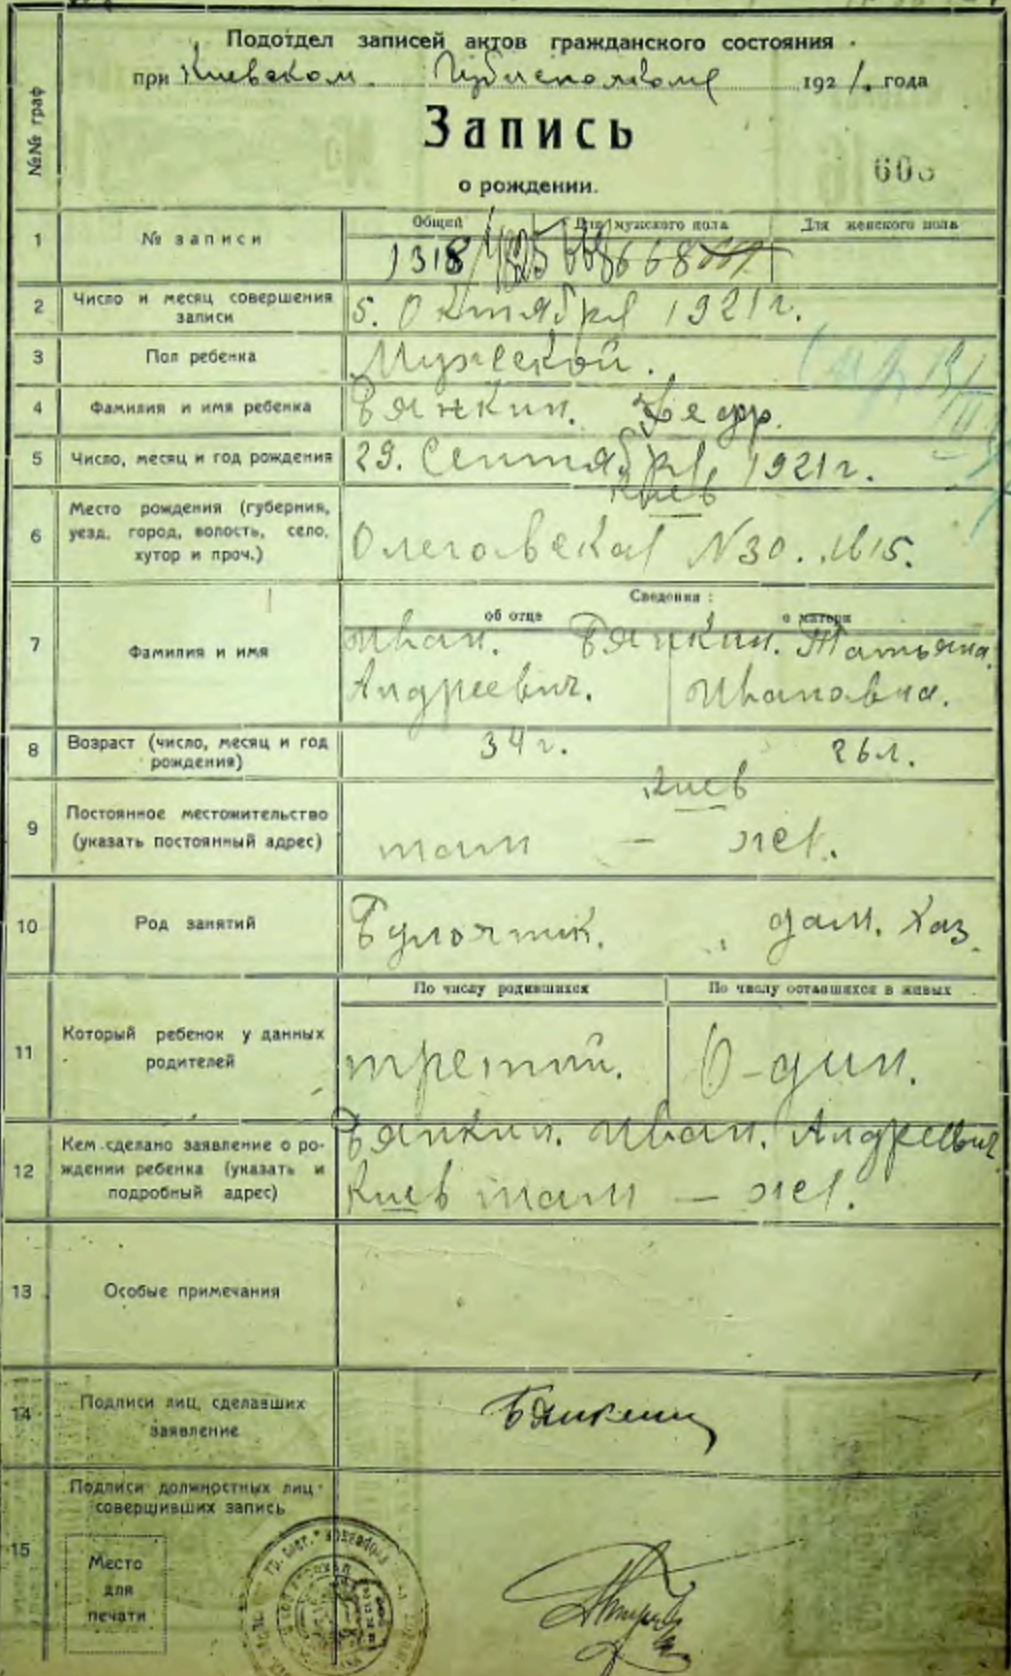 Подотдел записей актов гражданского состояния
при Киевском Губисполкоме 1921. года
№№ граф
Запись
о рождении.
1 № записи
Общий Для мужского пола Для женского пола
1318 668
2 Число и месяц совершения записи
5. Октября 1921 г.
3 Пол ребенка
Мужской.
4 Фамилия и имя ребенка
Бянкин.
5 Число, месяц и год рождения
29. Сентября, 1921 г.
6 Место рождения (губерния,
уезд, город, волость, село,
хутор и проч.)
Киев
Олеговская N 30.
7 Фамилия и имя
Сведения:
об отце о матери
Иван. Бянкин. Татьяна.
Андреевич. Ивановна.
8 Возраст (число, месяц и год
рождения)
34 г. 26 л.
9 Постоянное местожительство
(указать постоянный адрес)
Киев
там — же.
10 Род занятий
Булочник. дом. хаз.
11 Который ребенок у данных
родителей
По числу родившихся По числу оставшихся в живых
третий. О-дин.
12 Кем сделано заявление о ро-
ждении ребенка (указать и
подробный адрес)
Бянкин. Иван. Андреевич
Киев там — же.
13 Особые примечания
14 Подписи лиц, сделавших
заявление
Бянкин
15 Подписи должностных лиц
совершивших запись
Место
для
печати